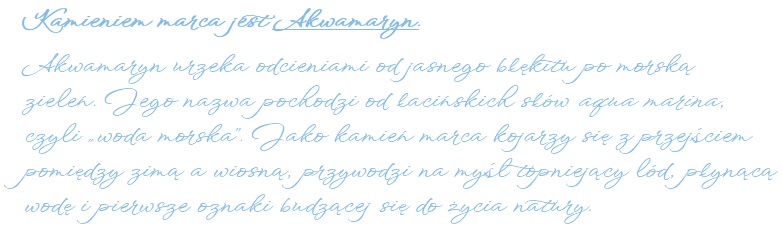 Kamieniem marca jest Akwamaryn.
Akwamaryn urzeka odcieniami od jasnego błękitu po morską
zieleń. Jego nazwa pochodzi od łacińskich słów aqua marina,
czyli „woda morska”. Jako kamień marca kojarzy się z przejściem
pomiędzy zimą a wiosną, przywodzi na myśl topniejący lód, płynącą
wodę i pierwsze oznaki budzącej się do życia natury.